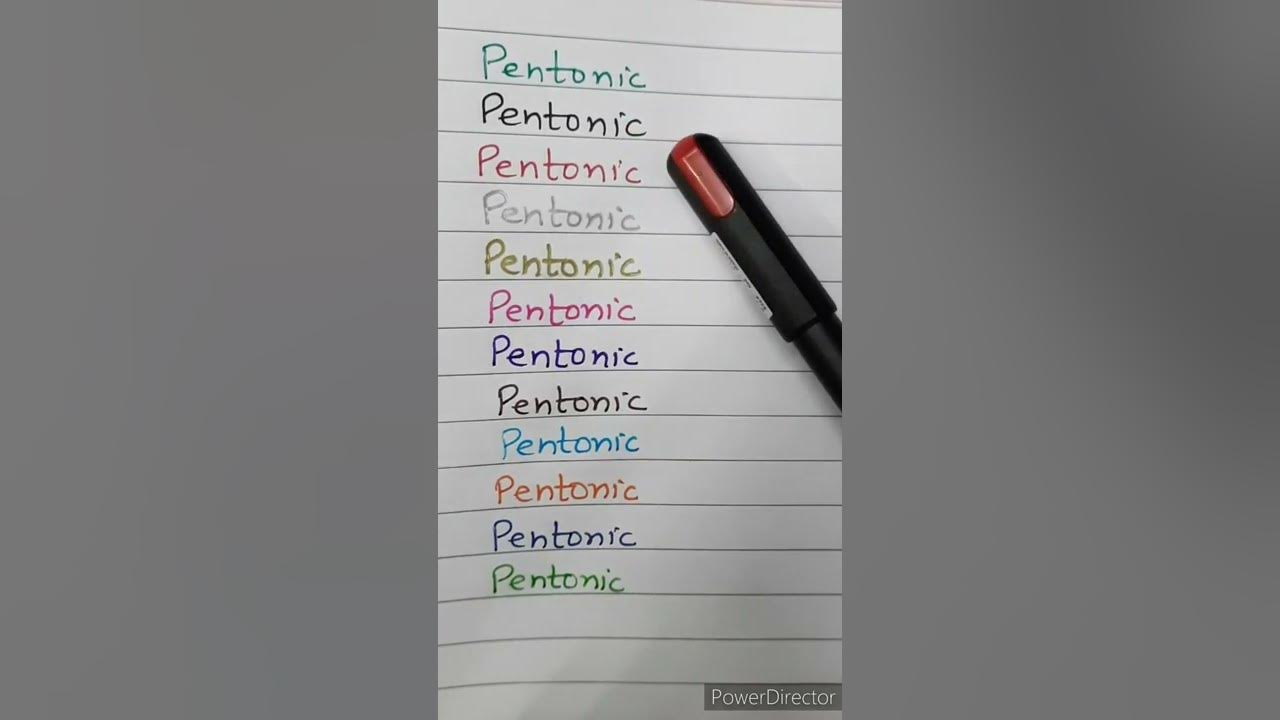 Pentonic
Pentonic
Pentonic
Pentonic
Pentonic
Pentonic
Pentonic
Pentonic
Pentonic
Pentonic
Pentonic
Pentonic
PowerDirector